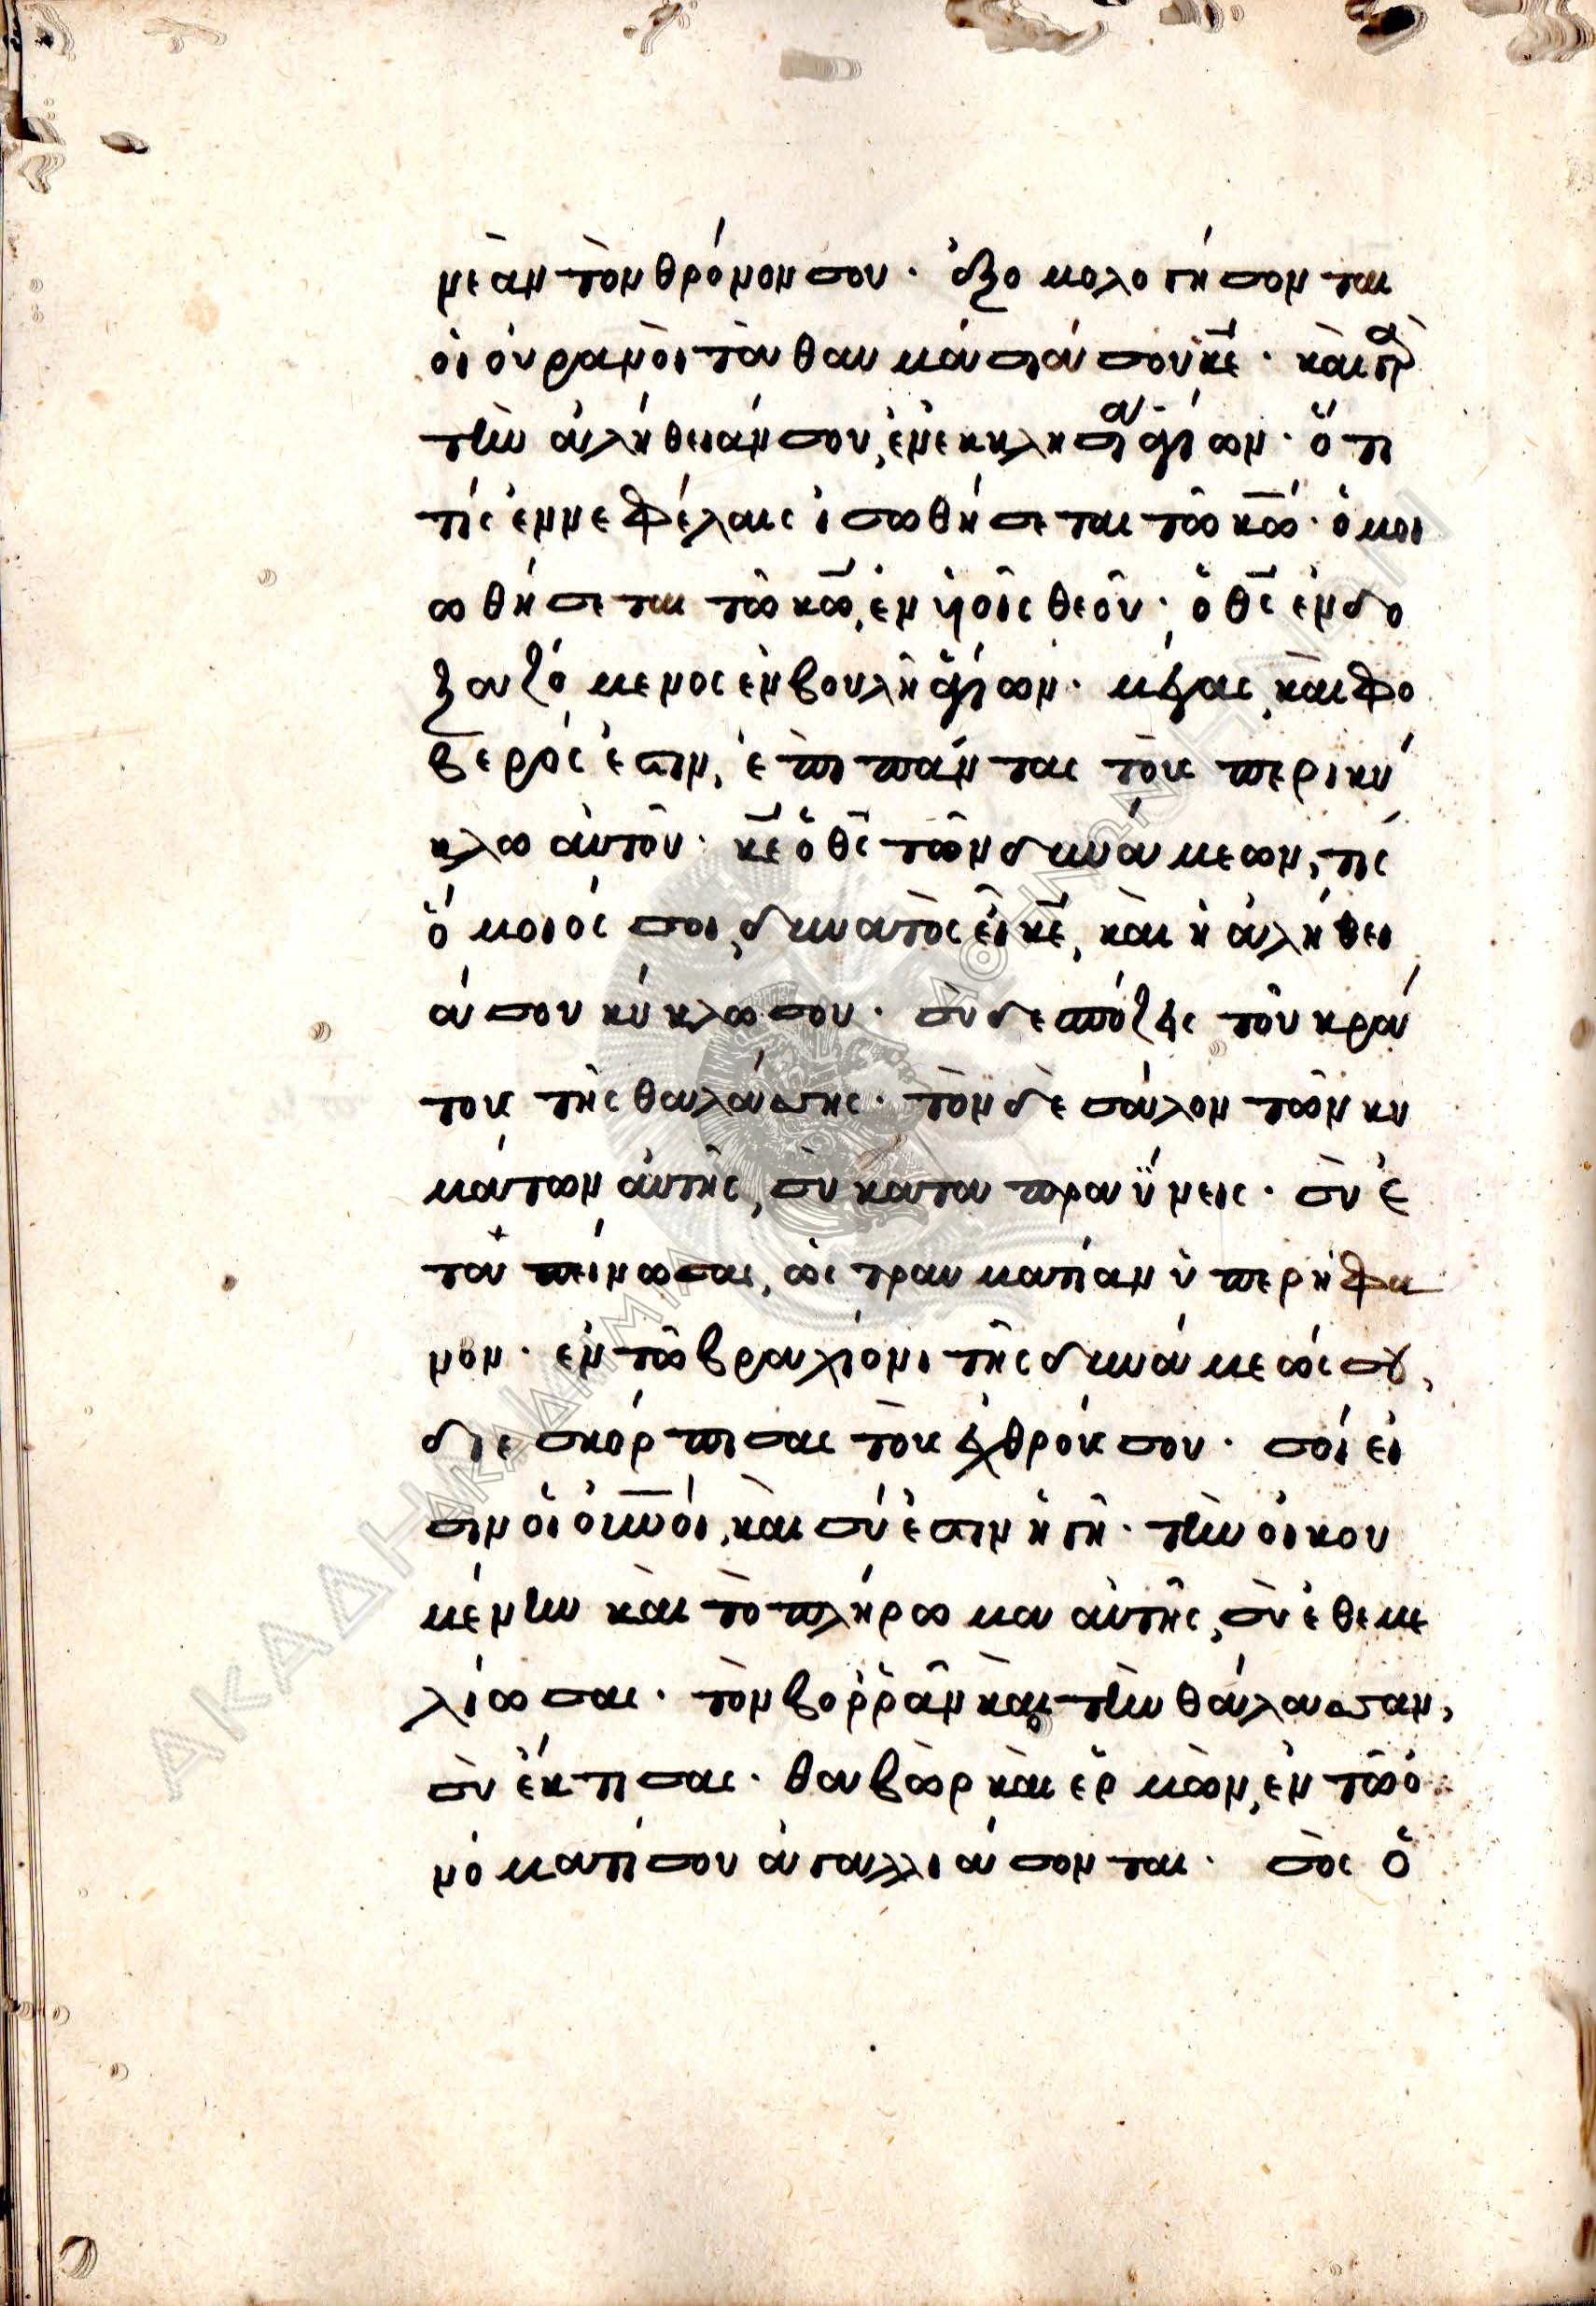 νεὰν τὸν θρόνον σου. ἐξομολογήσονται
οἱ οὐρανοὶ τὰ θαυμάσιά σου κε̅. καὶ γὰρ
τὴν ἀλήθειάν σου, ἐν ἐκκλησίᾳ ἁγίων. ὅτι
τίς ἐν νεφέλαις ἰσωθήσεται τῶ κω̅. ὁμοι
ωθήσεται τῶ κω̅, ἐν υἱοῖς θεοῦ. ὁ θς̅ ἐνδο
ξαζόμενος ἐν βουλῆ ἁγίων. μέγας καὶ φο
βερός ἐστιν, ἐπὶ πάντας τοὺς περικύ
κλω αὐτοῦ. κε̅ ὁ θς̅ τῶν δυνάμεων, τίς
ὅμοιός σοι, δυνατὸς εἶ κε̅, καὶ ἡ ἀλήθει
ά σου κύκλω σου. σὺ δεσπόζεις τοῦ κρά
τους τῆς θαλάσσης. τὸν δὲ σάλον τῶν κυ
μάτων αὐτῆς, σὺ καταπραΰνεις. σὺ ἐ
ταπείνωσας, ὡς τραυματίαν ὑπερήφα
νον. ἐν τῶ βραχίονι τῆς δυνάμεώς σου,
διεσκόρπισας τοὺς ἐχθρούς σου. σοί εἰ
σιν οἱ οὐνοί, καὶ σή ἐστιν ἡ γῆ. τὴν οἰκου
μένην καὶ τὸ πλήρωμα αὐτῆς, σὺ ἐθεμε
λίωσας. τὸν βορρᾶν καὶ τὴν θάλασσαν,
σὺ ἔκτισας. θαβὼρ καὶ ἑρμὼν, ἐν τῶ ὀ
νόματί σου ἀγαλλιάσονται. σὸς ὁ
ΑΚΑΔΗΜΙΑ ΑΘΗΝΩΝ